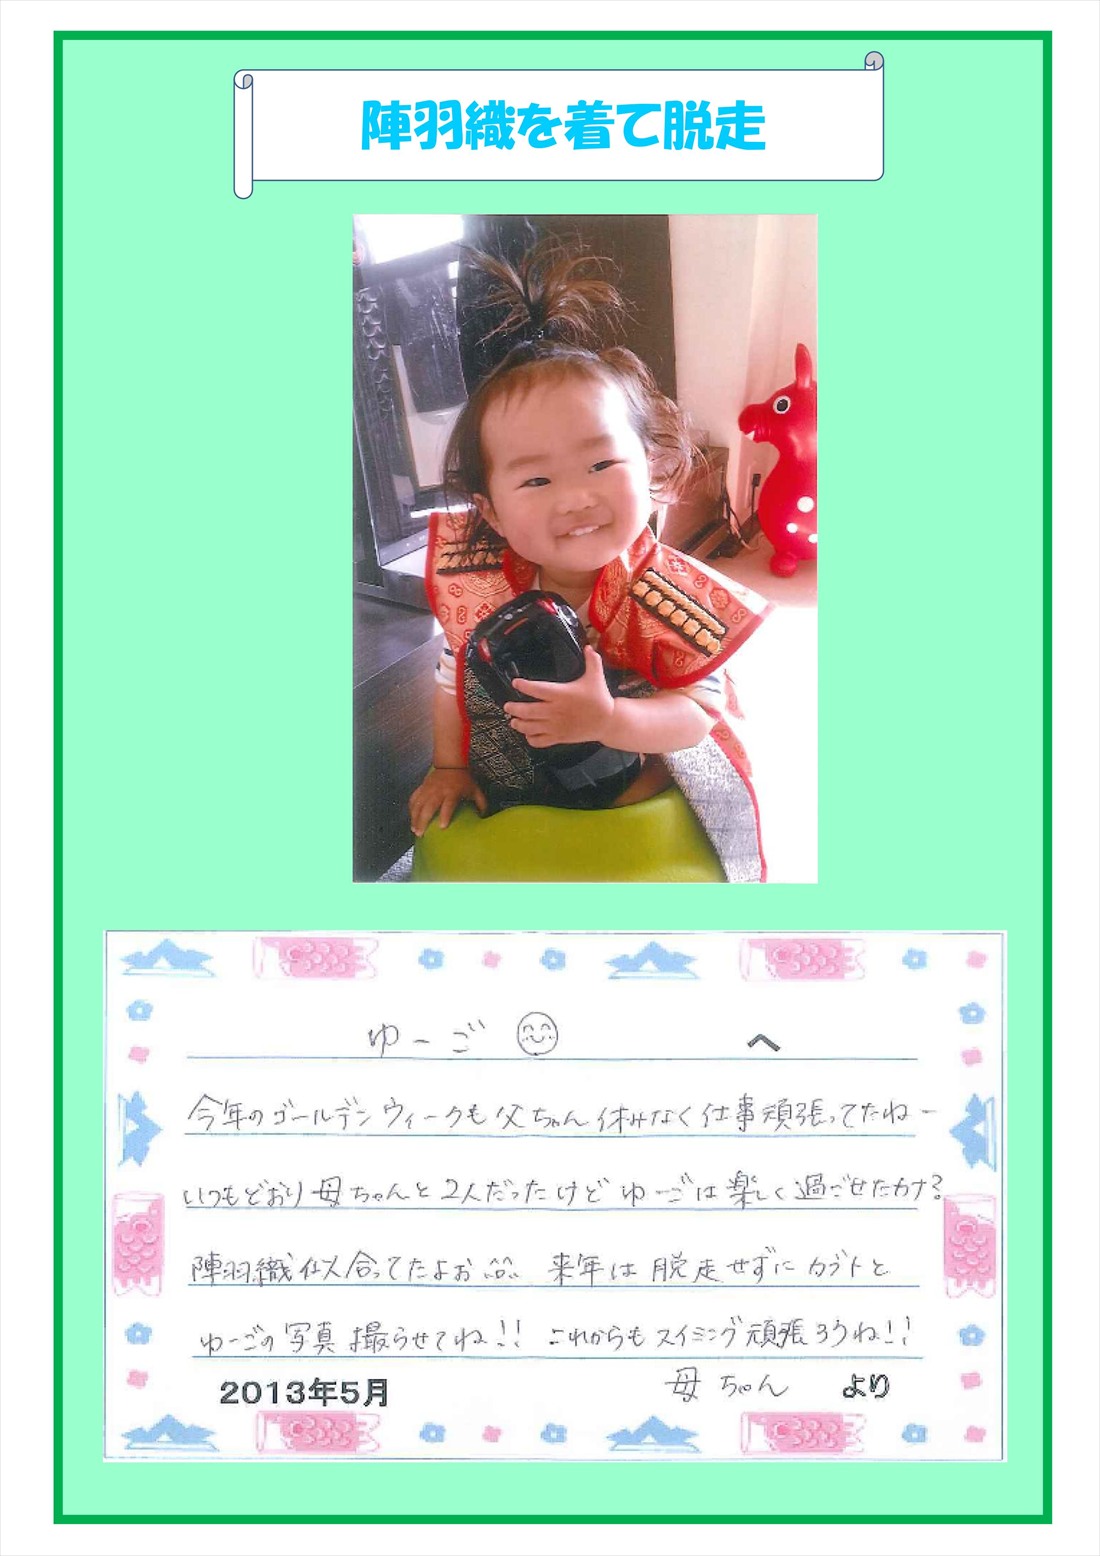 陣羽織を着て脱走
ゆーご へ
今年のゴールデンウィークも父ちゃん休みなく仕事頑張ってたねー
いつもどおり母ちゃんと2人だったけどゆーごは楽しく過ごせたカナ?
陣羽織似合ってたよお 来年は脱走せずにカブトと
ゆーごの写真撮らせてね!! これからもスイミング頑張ろうね!!
2013年5月 母ちゃん より